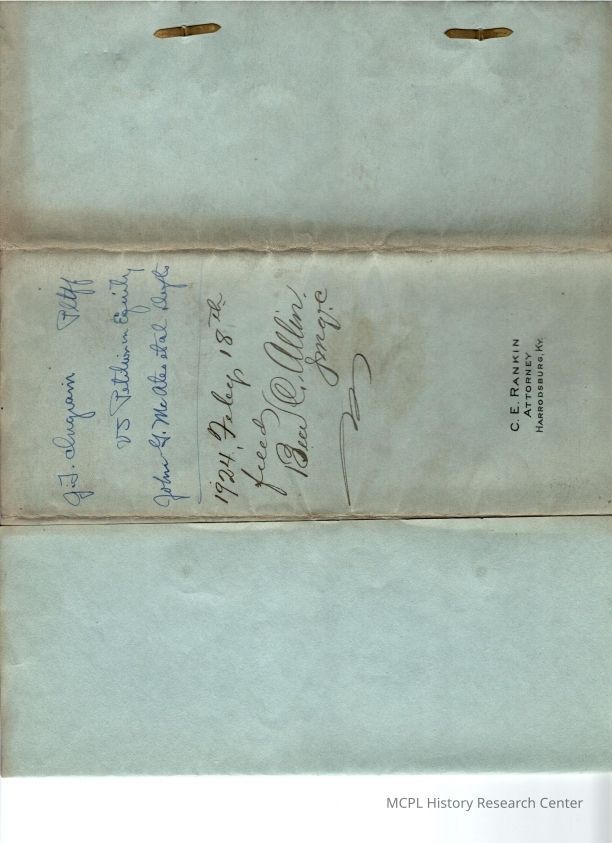 J. T. Ingram Pltff
vs Petition in Equity
John G. McAtee et al Defts
1924, Feby 18th
filed
Ben C. Allin.
C. E. RANKIN
ATTORNEY
HARRODSBURG, KY.
MCPL History Research Center